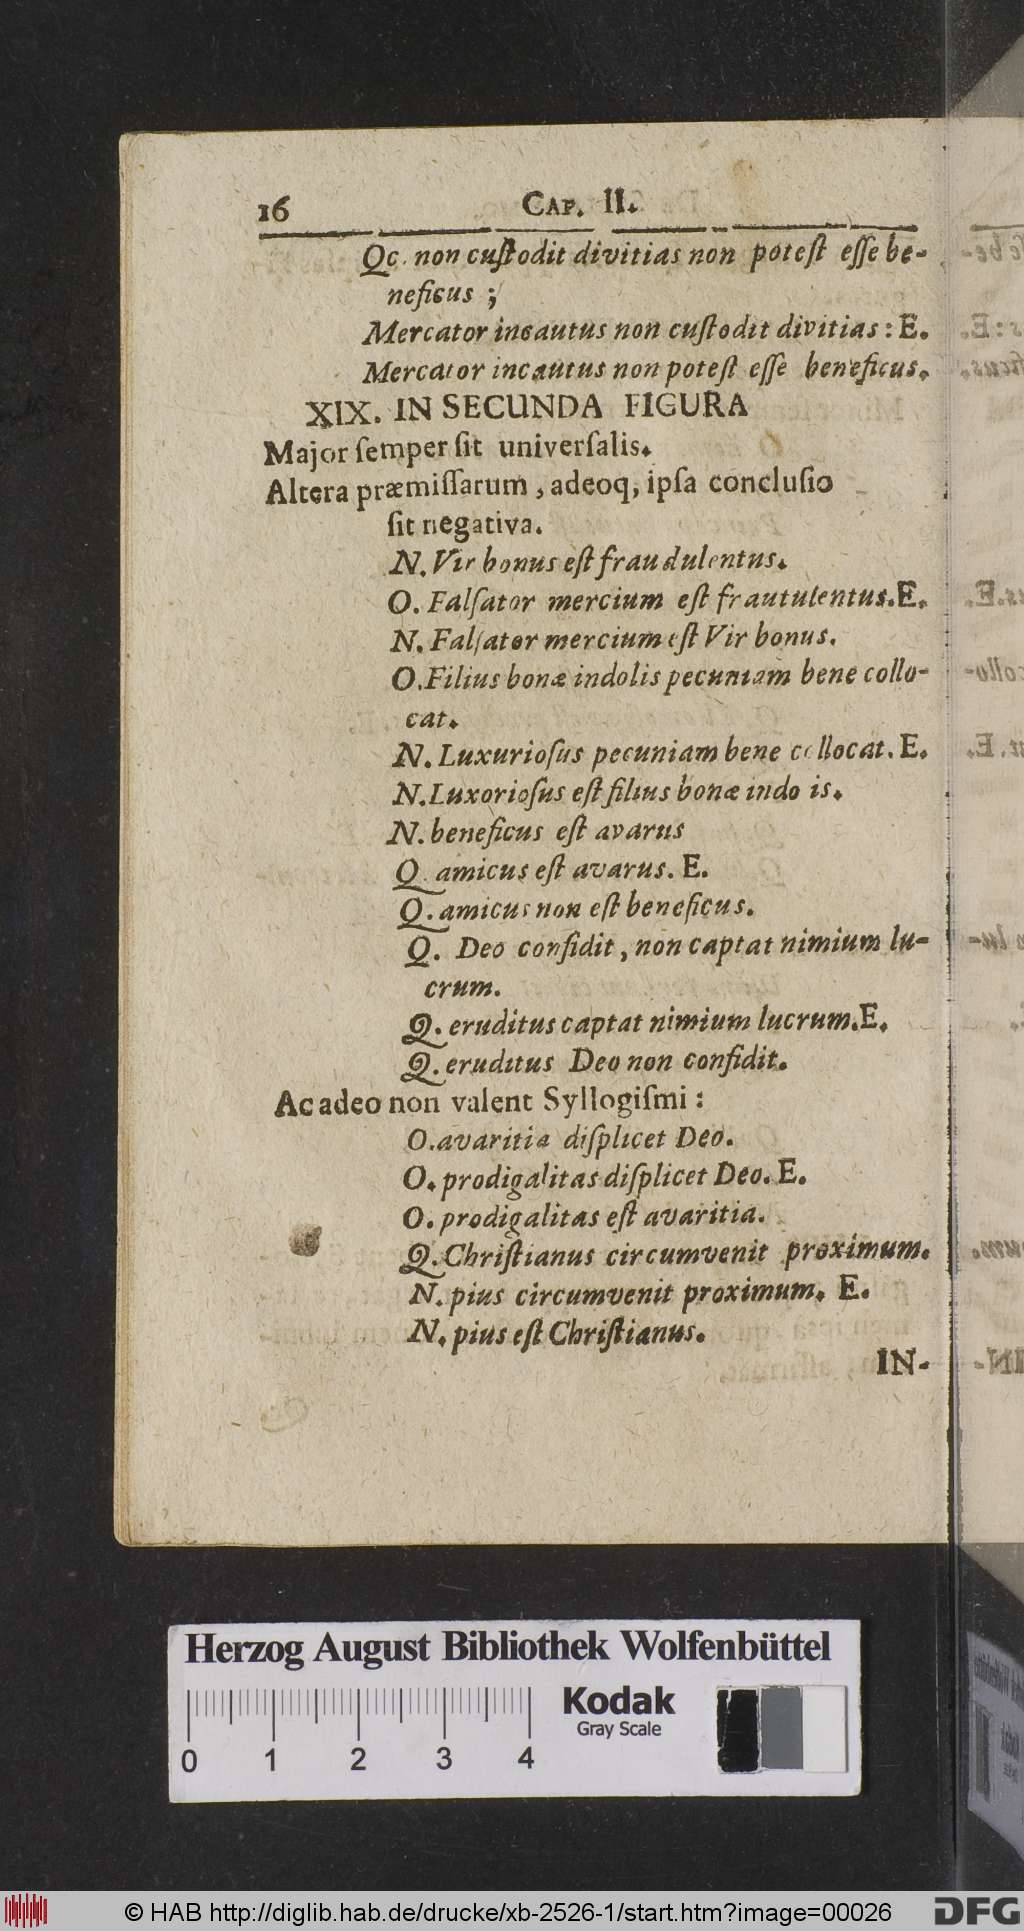 16 CAP. II.
Qc. non cuſtodit divitias non poteſt eſſe be-
neficus ;
Mercator incautus non cuſtodit divitias : E.
Mercator incautus non poteſt eſſe beneficus.
XIX. IN SECUNDA FIGURA
Major ſemper ſit univerſalis.
Altera præmiſſarum, adeoq, ipſa concluſio
ſit negativa.
N. Vir bonus eſt fraudulentus.
O. Falſator mercium eſt frautulentus. E.
N. Falſator mercium eſt Vir bonus.
O. Filius bonæ indolis pecuniam bene collo-
cat.
N. Luxurioſus pecuniam bene collocat. E.
N. Luxorioſus eſt filius bonæ indo is.
N. beneficus eſt avarus
Q. amicus eſt avarus. E.
Q. amicus non eſt beneficus.
Q. Deo confidit, non captat nimium lu-
crum.
Q. eruditus captat nimium lucrum. E.
Q. eruditus Deo non confidit.
Ac adeo non valent Syllogiſmi :
O. avaritia diſplicet Deo.
O. prodigalitas diſplicet Deo. E.
O. prodigalitas eſt avaritia.
Q. Chriſtianus circumvenit proximum.
N. pius circumvenit proximum. E.
N. pius eſt Chriſtianus.
IN-
Herzog August Bibliothek Wolfenbüttel
Kodak
Gray Scale
0 1 2 3 4
© HAB http://diglib.hab.de/drucke/xb-2526-1/start.htm?image=00026
DFG